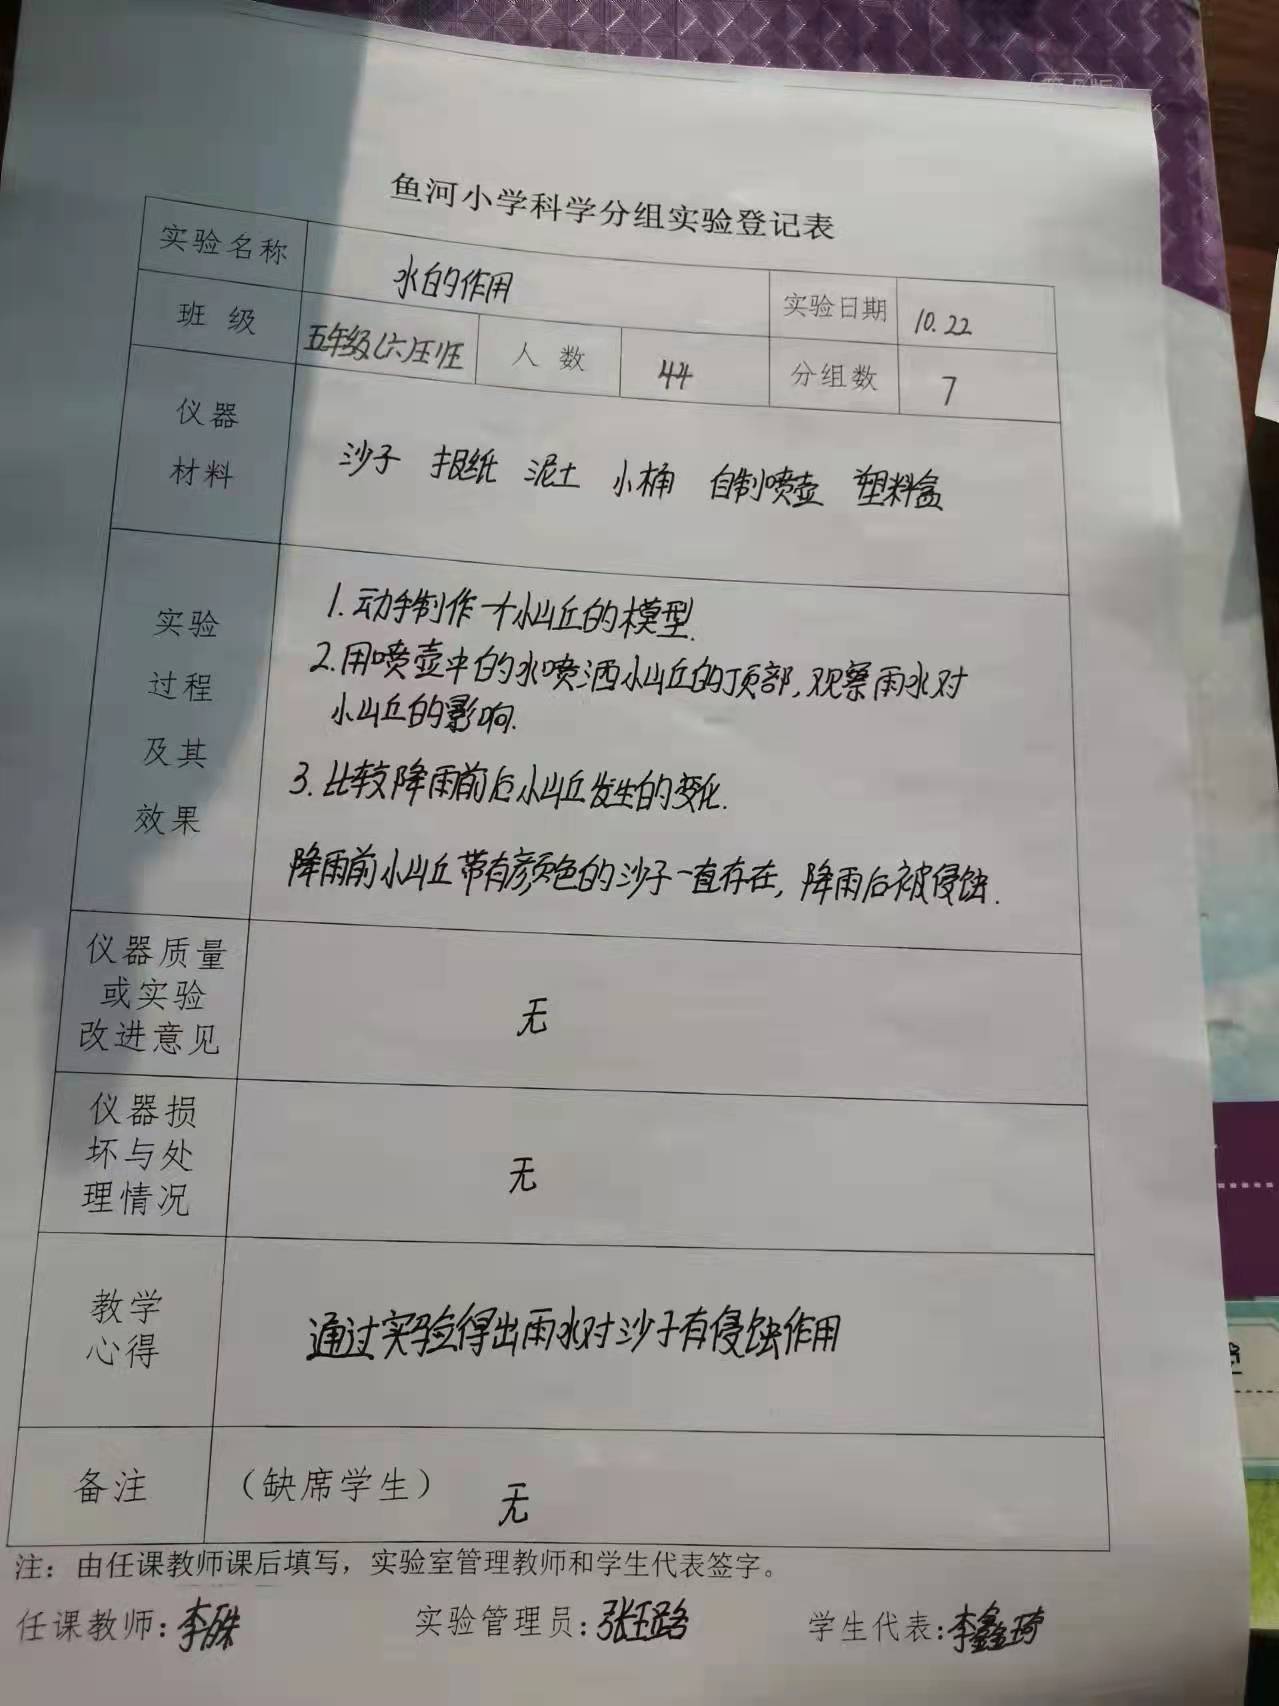 鱼河小学科学分组实验登记表
实验名称 水的作用 实验日期 10.22
班 级 五年级(六)班 人 数 44 分组数 7
仪器
材料
沙子 报纸 泥土 小桶 自制喷壶 塑料盒
实验
过程
及其
效果
1.动手制作一个小山丘的模型.
2.用喷壶中的水喷洒小山丘的顶部,观察雨水对
小山丘的影响.
3.比较降雨前后小山丘发生的变化.
降雨前小山丘带有颜色的沙子一直存在,降雨后被侵蚀.
仪器质量
或实验
改进意见
无
仪器损
坏与处
理情况
无
教学
心得
通过实验得出雨水对沙子有侵蚀作用
备注 (缺席学生) 无
注：由任课教师课后填写，实验室管理教师和学生代表签字。
任课教师: 李 实验管理员: 张珏路 学生代表: 李鑫琦